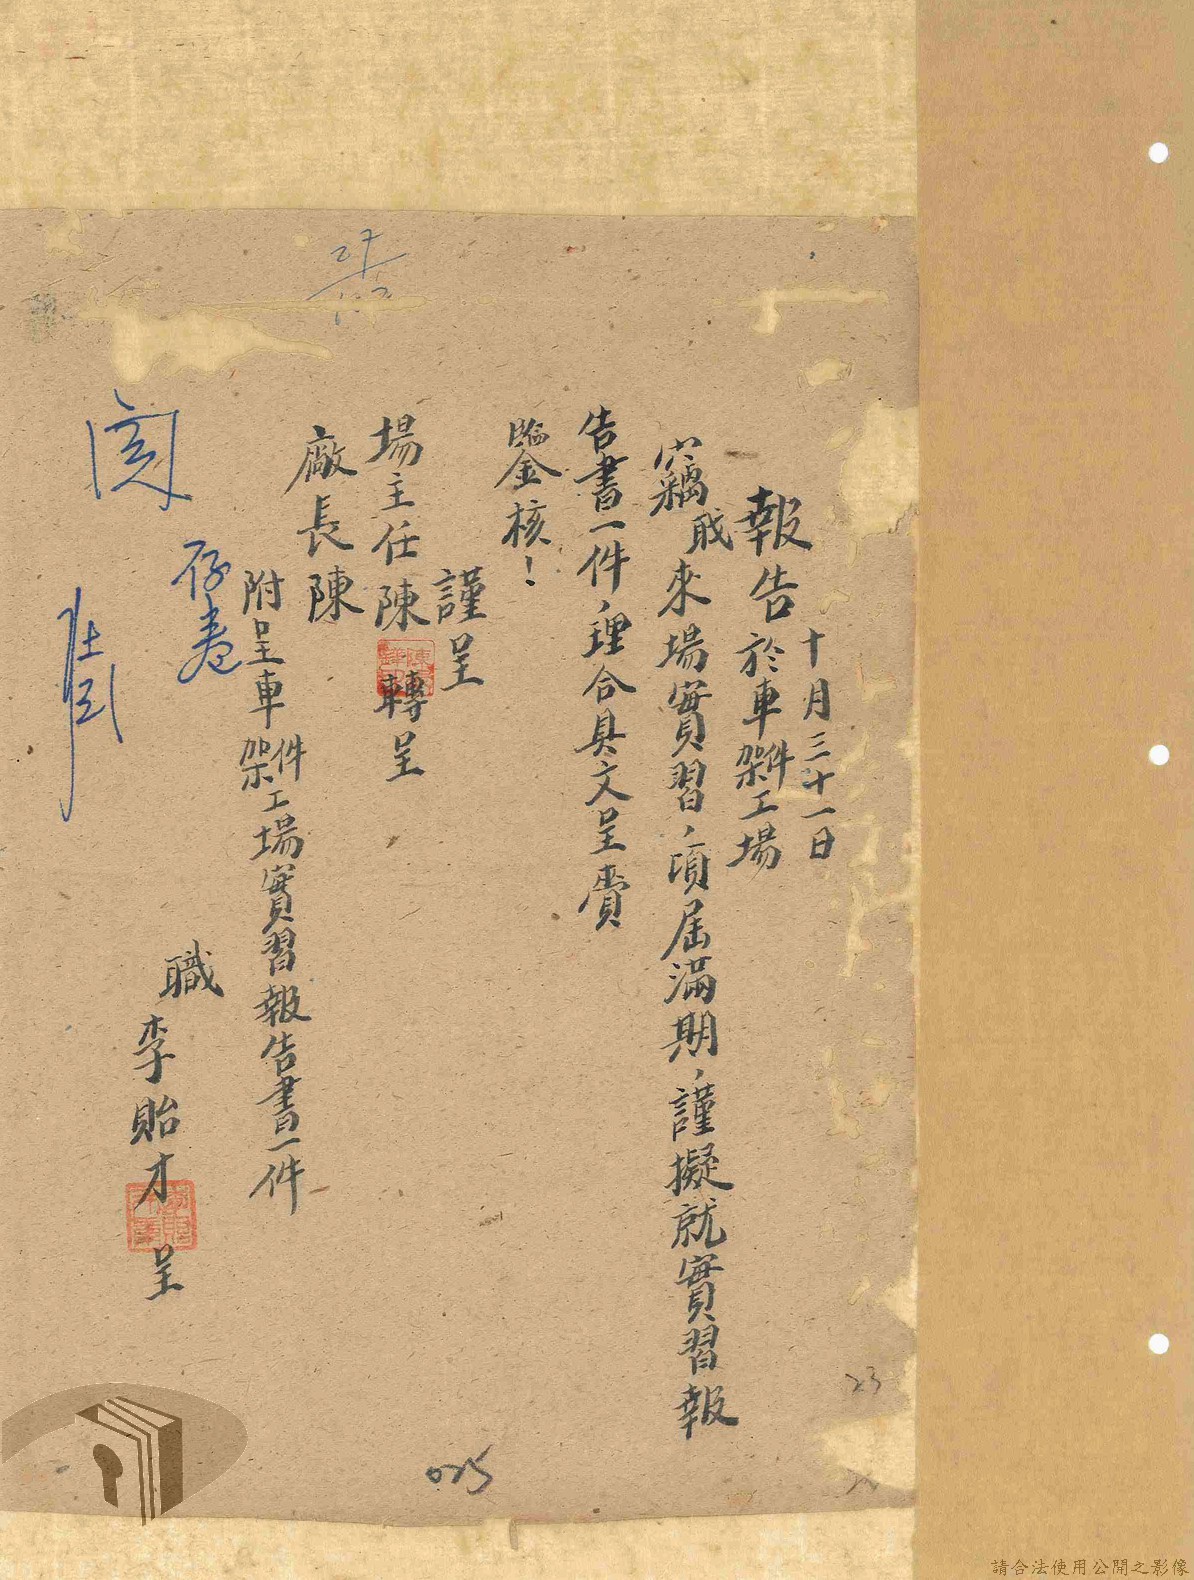 報告 十月三十一日
於車架件工場
竊職來場實習，頃屆滿期，謹擬就實習報
告書一件，理合具文呈賚
鑒核！
謹呈
場主任陳 轉呈
廠長陳
附呈車架件工場實習報告書一件
職 李貽才 呈
閱
存卷
025
23
請合法使用公開之影像